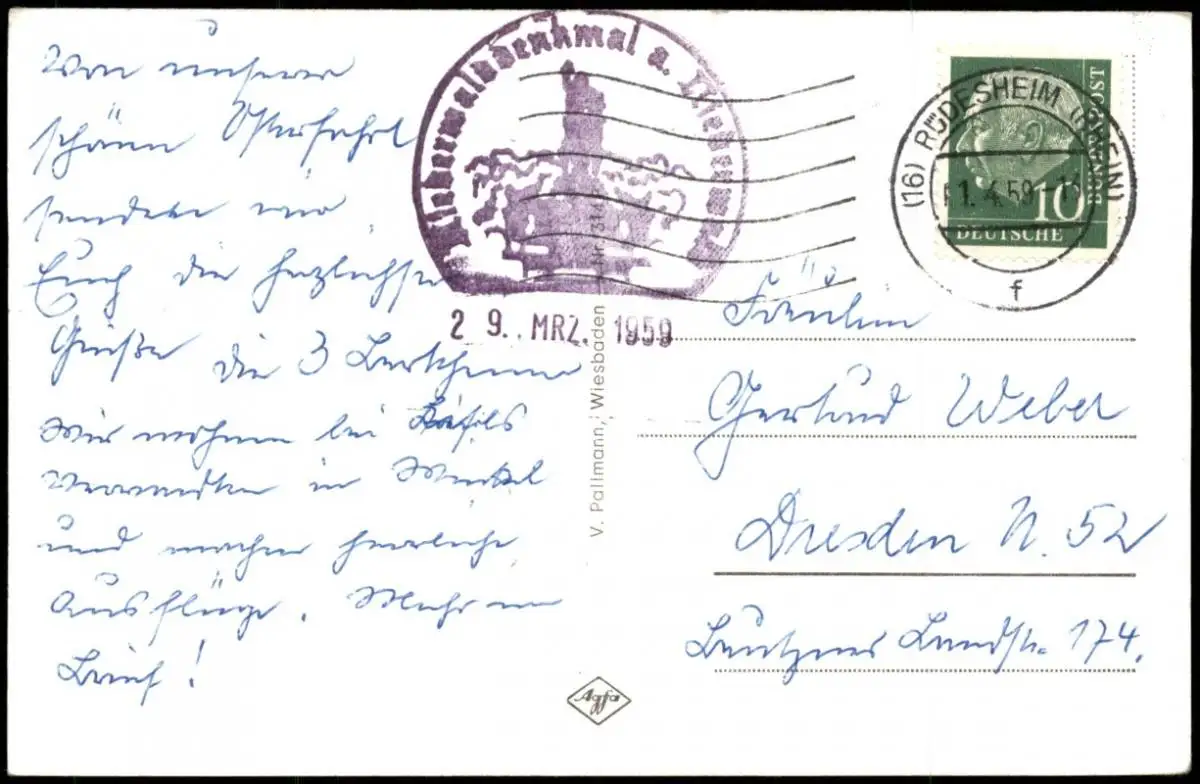 Von unserer
schönen Osterfahrt
senden wir
Euch die herzlichsten
Grüße die 3
Wir wohnen bei
Verwandten in Winkel
und machen herrliche
Ausflüge. Mehr im
Brief!
Niederwalddenkmal a. Niederwald
29. MRZ. 1959
Nr. 31
V. Pallmann, Wiesbaden
Agfa
(16) RÜDESHEIM (RHEIN)
1.4.59
f
10
DEUTSCHE
BUNDESPOST
Fräulein
Gertrud Weber
Dresden N. 52
Bautzner Landstr. 174.